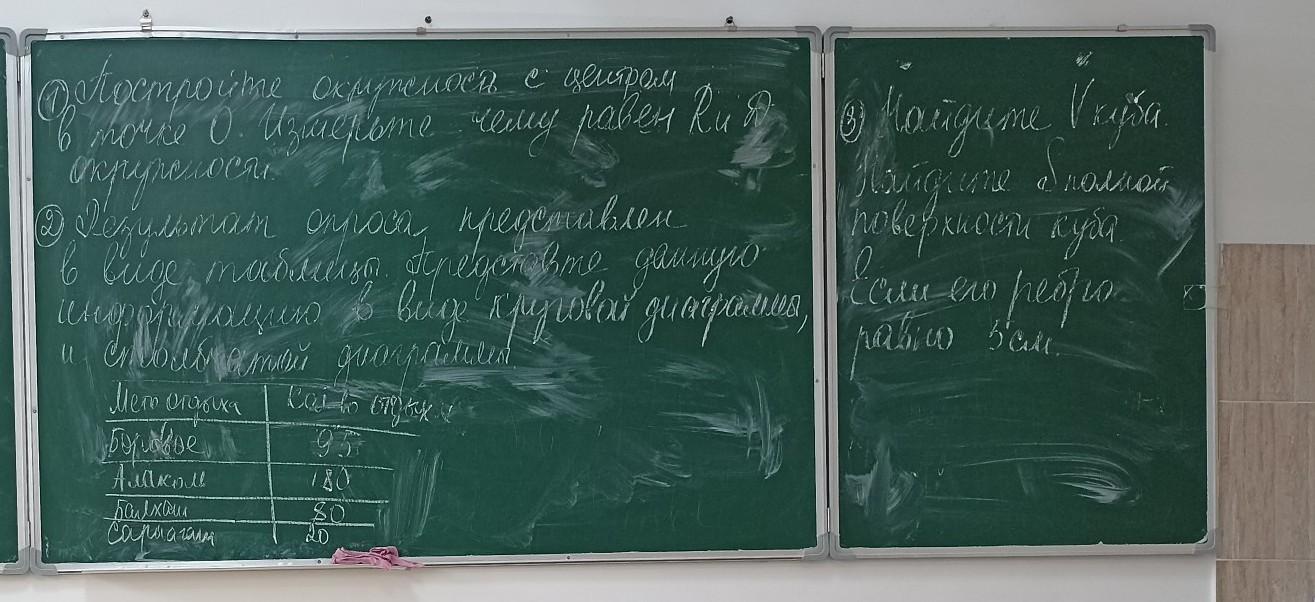 ① Постройте окружность с центром
в точке О. Измерьте чему равен R и D
окружности.
② Результат опроса, представлен
в виде таблицы. Представте данную
информацию в виде круговой диаграммы,
и столбчатой диаграммы
Место отдыха Кол-во отдых.
Боровое 95
Алаколь 180
Балхаш 80
Сарыагаш 20
③ Найдите V куба.
Найдите S полной
поверхности куба.
Если его ребро
равно 5 см.